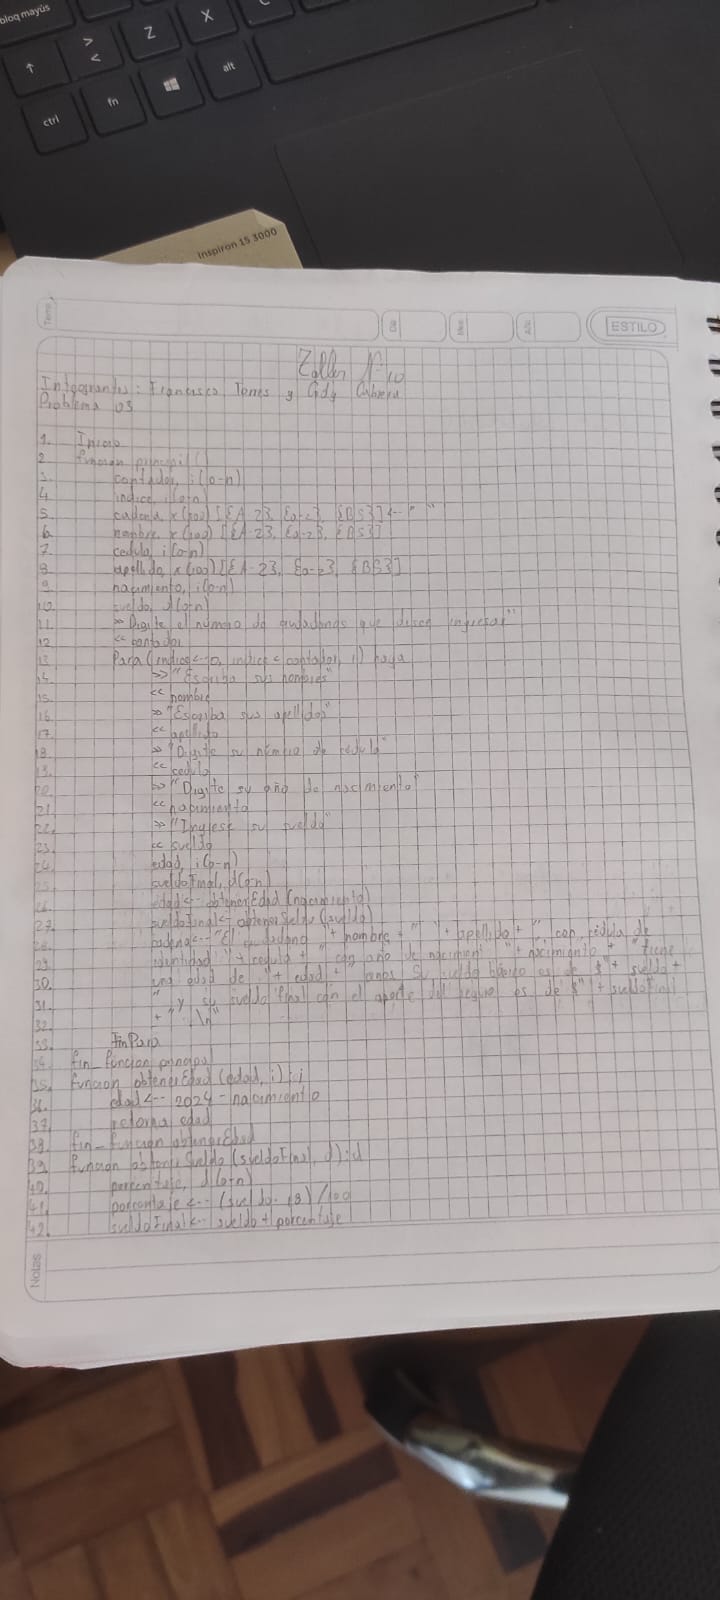 bloq mayús
Z
X
>
<
↑
alt
fn
ctrl
Inspiron 15 3000
Tema
Día
Mes
Año
ESTILO
Taller N° 10
Integrantes: Francisco Torres y Cabrera
Problema 03
1. Inicio
2 funcion principal()
3. contador, i(0-n)
4 indice, i(0-n)
5. cadena x(100) [{A-Z}, {a-z}, {BS}] <- " "
6. nombre x(100) [{A-Z}, {a-z}, {BS}]
7. cedula, i(0-n)
8 apellido, x(100) [{A-Z}, {a-z}, {BS}]
9. nacimiento, i(0-n)
10. sueldo, d(0-n)
11. >> Digite el número de ciudadanos que desea ingresar"
12. << contador
13 Para (indice<-0, indice < contador, 1) haga
14. >> "Escriba sus nombres"
15. << nombre
16. >> "Escriba sus apellidos"
17. << apellido
18. >> "Digite su número de cedula"
19. << cedula
20. >> "Digite su año de nacimiento"
21. << nacimiento
22. >> "Ingrese su sueldo"
23. << sueldo
24. edad, i(0-n)
25. sueldoFinal, d(0-n)
26. edad <- obtenerEdad (nacimiento)
27. sueldoFinal <- obtenerSueldo (sueldo)
28. cadena <-- "El ciudadano "+ nombre + " " + apellido + ", con cédula de
29. identidad "+ cedula + " con año de nacimien "+ nacimiento + " tiene
30. una edad de "+ edad + " años su sueldo básico es de $"+ sueldo +
31. " y su sueldo final con el aporte del seguro es de $"+ sueldoFinal
32. + " \n"
33. FinPara
34. fin_funcion principal
35. funcion obtenerEdad (edad, i): i
36. edad <-- 2024 - nacimiento
37. retorna edad
38. fin_funcion obtenerEdad
39. funcion obtenerSueldo (sueldoFinal, d): d
40. porcentaje, d(0-n)
41. porcentaje <-- (sueldo. 18) / 100
42. sueldoFinal <-- sueldo + porcentaje
Notas